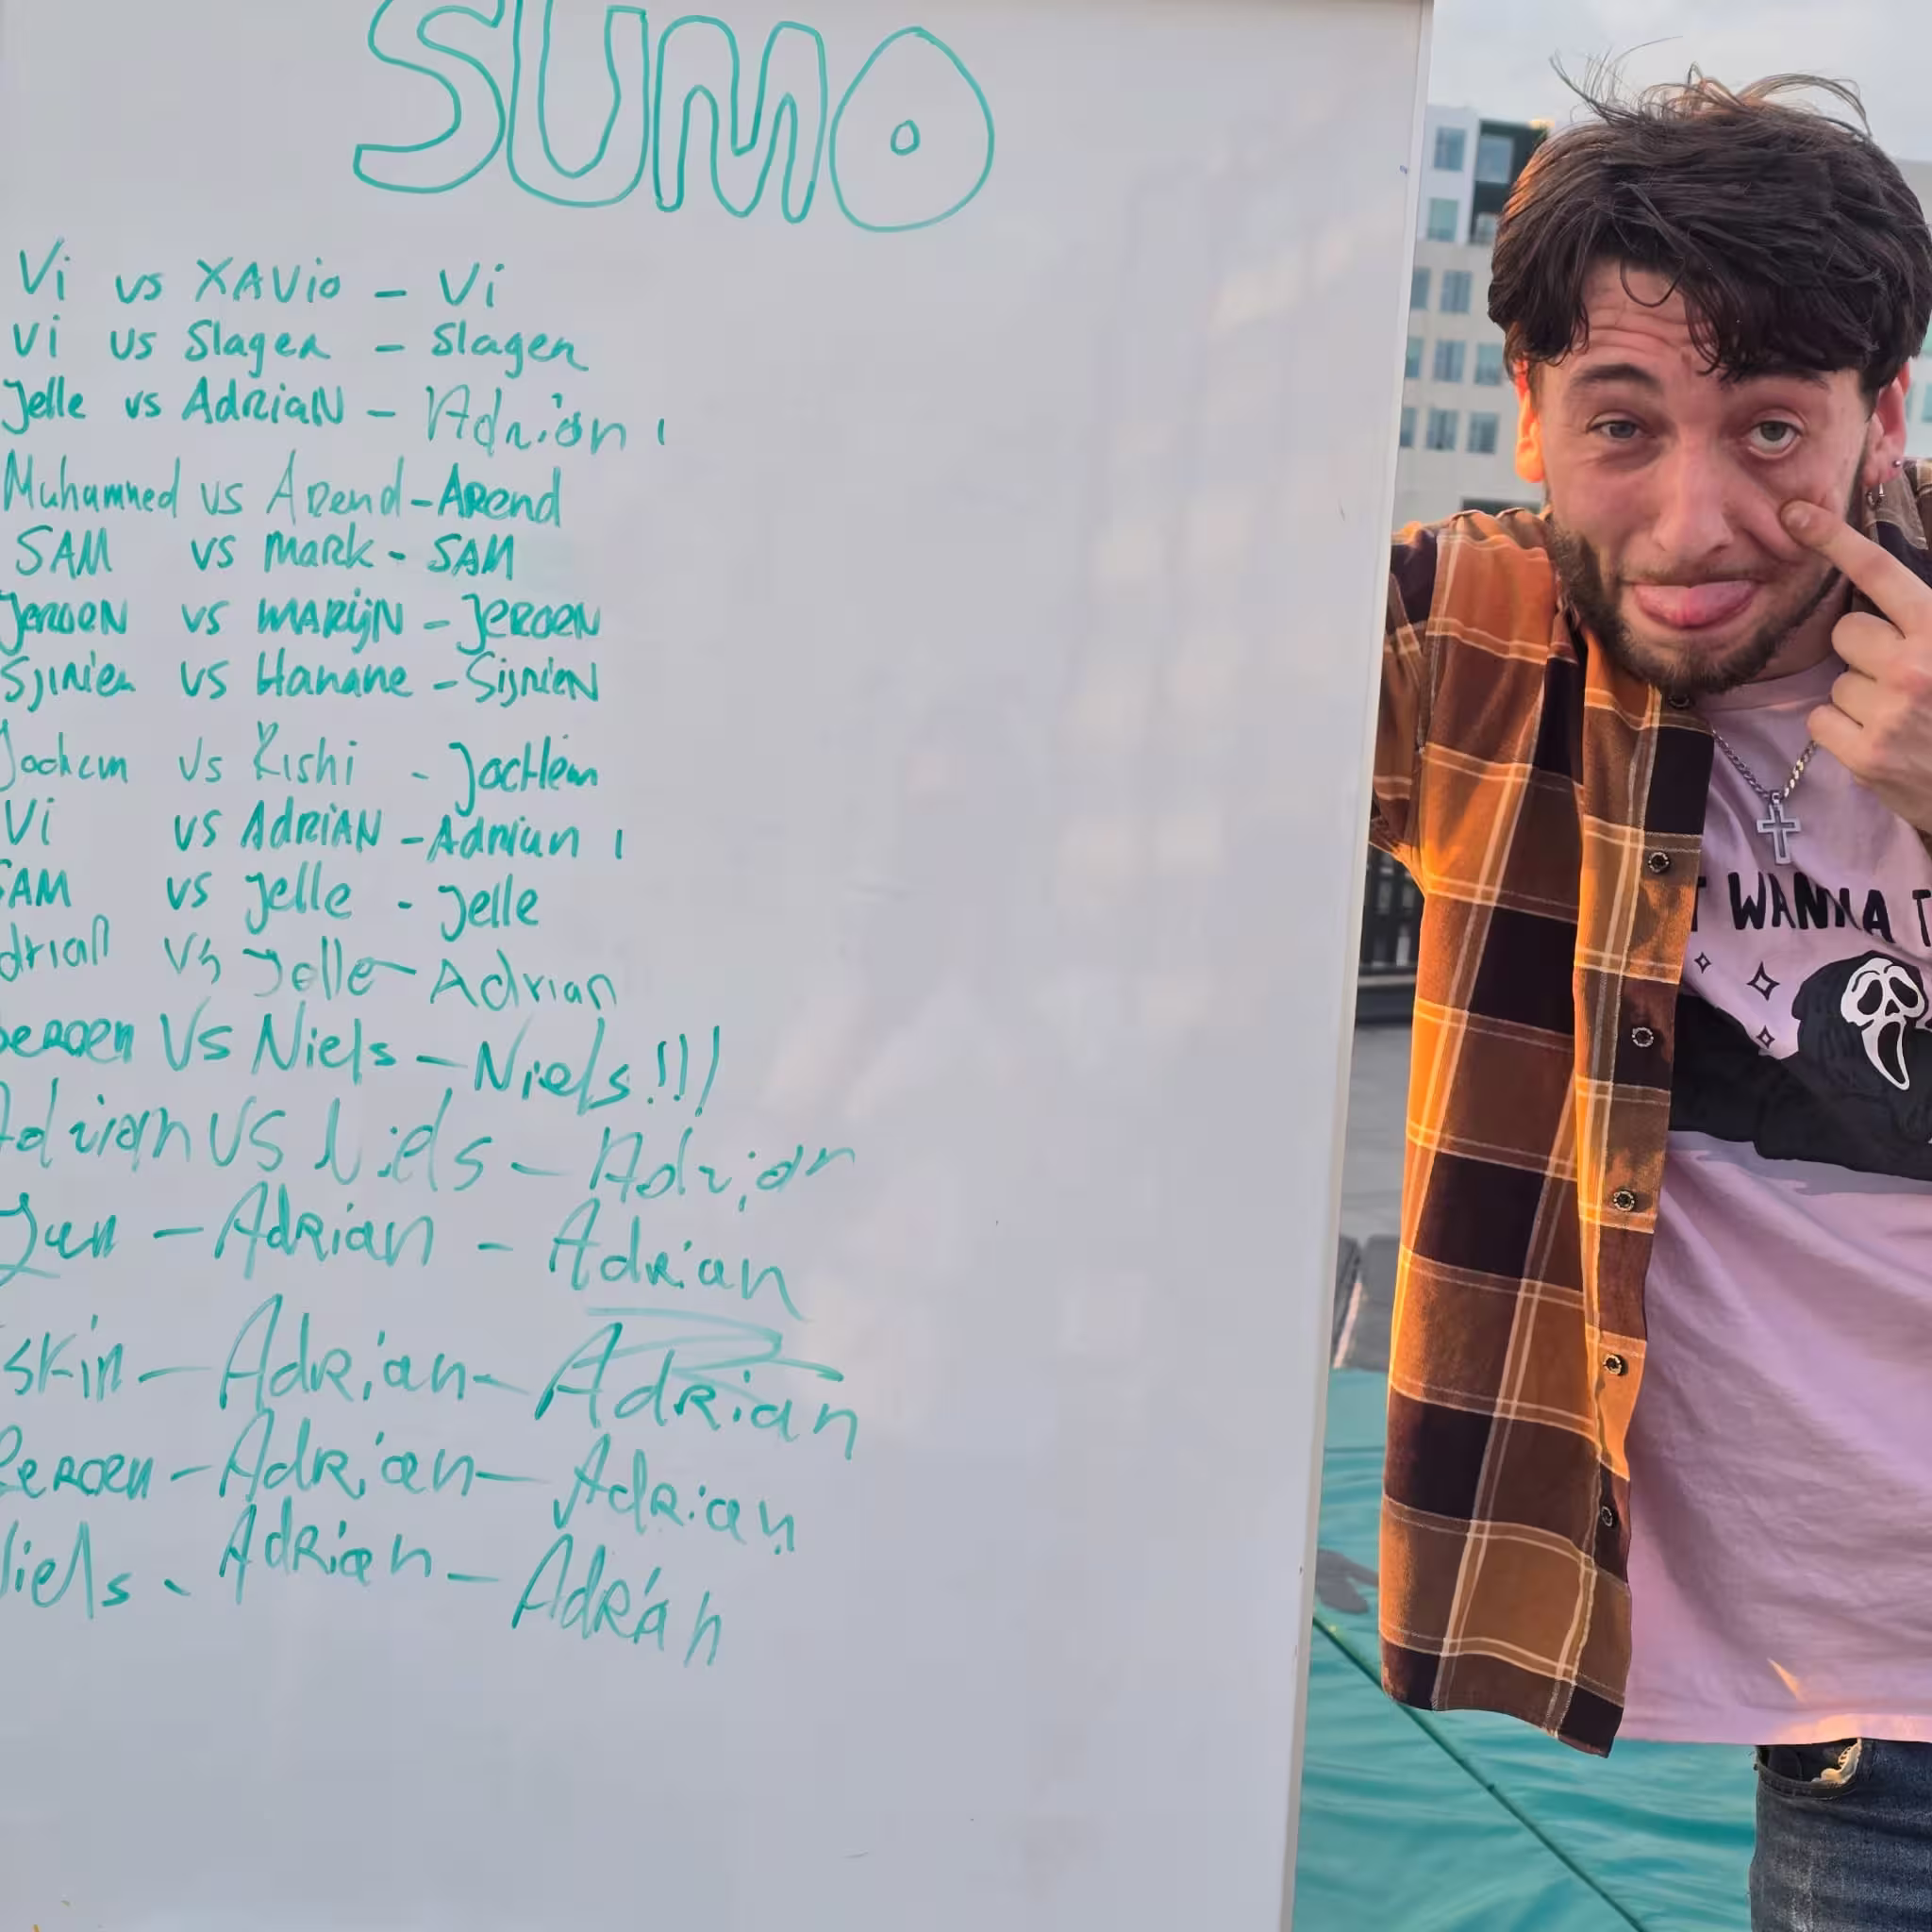 SUMO
Vi vs XAVio - Vi
Vi vs Slager - Slager
Jelle vs AdriaN - Adrian
Muhammed vs Arend - Arend
SAM vs Mark - SAM
JeroeN vs MARijN - JEROEN
vs Hanane - SijrieN
Jochem vs Rishi - JocHem
Vi vs AdriAN - Adrian
SAM vs Jelle - Jelle
drian Vs Jelle - Adrian
eroen Vs Niels - Niels!!!
Adrian VS Niels - Adrian
- Adrian - Adrian
skin - Adrian - Adrian
eroen - Adrian - Adrian
iels - Adrian - Adrian
T WANNA T